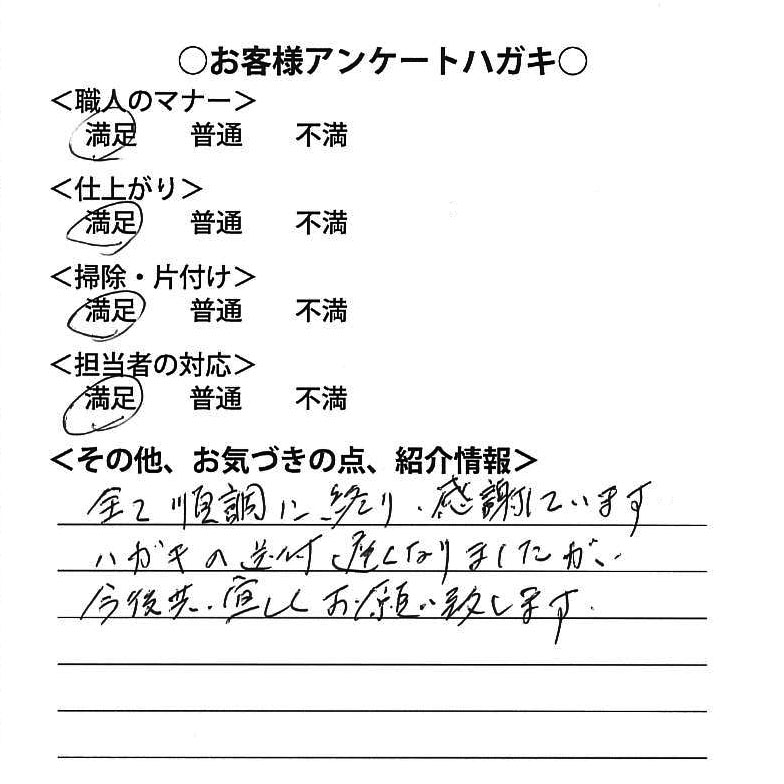 ○お客様アンケートハガキ○
＜職人のマナー＞
満足 普通 不満
＜仕上がり＞
満足 普通 不満
＜掃除・片付け＞
満足 普通 不満
＜担当者の対応＞
満足 普通 不満
＜その他、お気づきの点、紹介情報＞
全て順調に終り、感謝しています
ハガキの送付遅くなりましたが、
今後共、宜しくお願い致します.